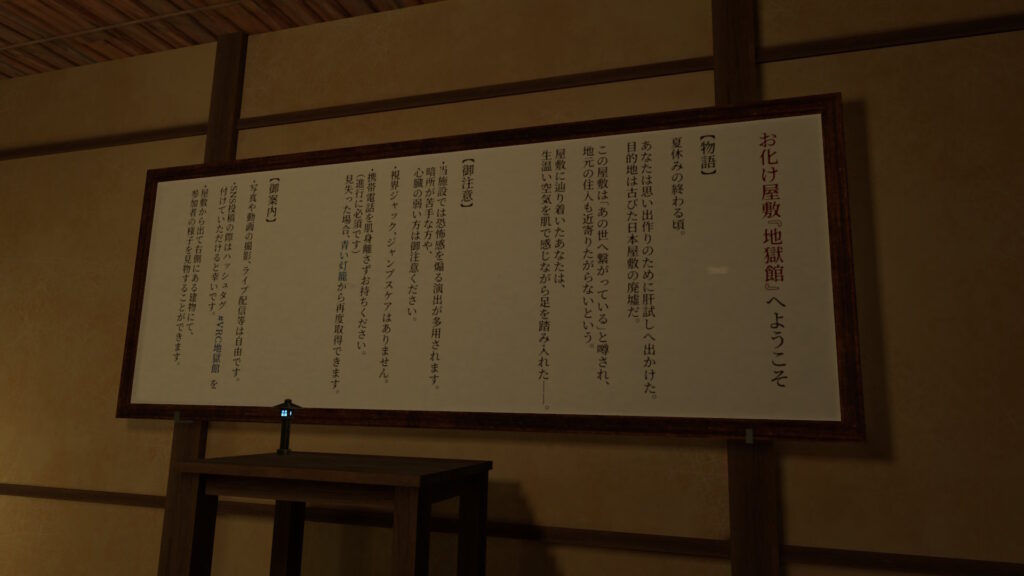 お化け屋敷『地獄館』へようこそ
【物語】
夏休みの終わる頃。
あなたは思い出作りのために肝試しへ出かけた。
目的地は古びた日本屋敷の廃墟だ。
この屋敷は「あの世へ繋がっている」と噂され、
地元の住人も近寄りたがらないという。
屋敷に辿り着いたあなたは、
生温い空気を肌で感じながら足を踏み入れた――。
【御注意】
・当施設では恐怖感を煽る演出が多用されます。
暗所が苦手な方や、
心臓の弱い方は御注意ください。
・視界ジャック、ジャンプスケアはありません。
・携帯電話を肌身離さずお持ちください。
(進行に必須です)
見失った場合、青い灯籠から再度取得できます。
【御案内】
・写真や動画の撮影、ライブ配信等は自由です。
・SNS投稿の際はハッシュタグ #VRC地獄館 を
付けていただけると幸いです。
・屋敷から出て右側にある建物にて、
参加者の様子を見物することができます。